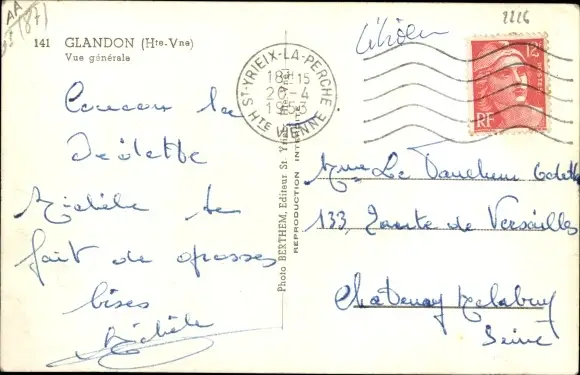 141 GLANDON (Hte-Vne)
Vue générale
2226
AA
(87)
ST-YRIEIX-LA-PERCHE
18H15
20-4
HTE VIENNE
12F
RF
Coucou la
Michèle te
fait de grosses
bises
Michèle
Photo BERTHEM, Editeur St Yrieix
REPRODUCTION INTERDITE
Mme Le
133, Route de Versailles
Chatenay Malabry
Seine